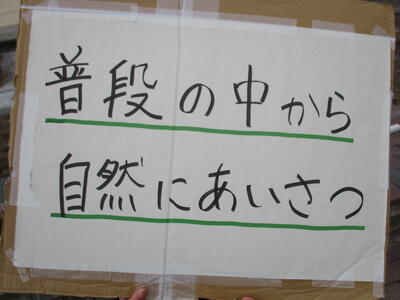 普段の中から
自然にあいさつ